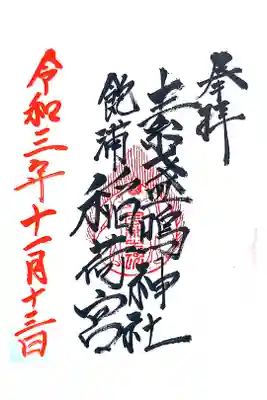 奉拝
素盞鳴神社
飽浦 稲荷宮
令和三年十一月十三日